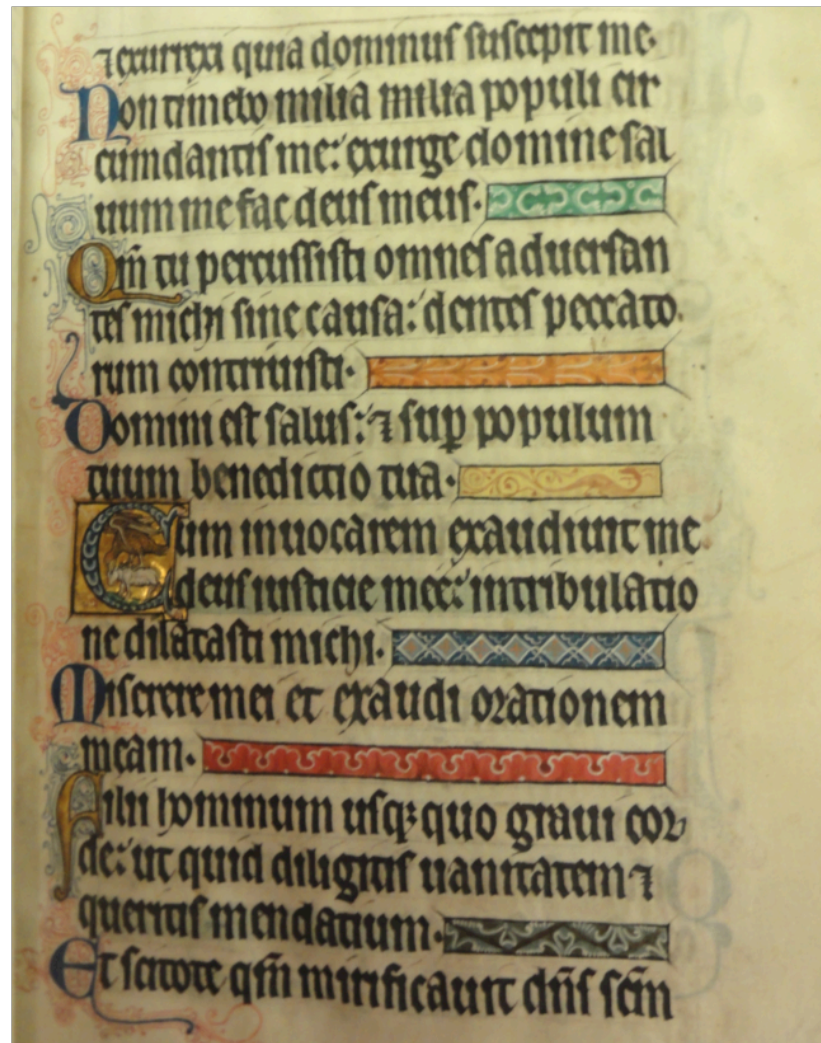 ⁊ exurrexi quia dominus suscepit me.
Non timebo milia milia populi cir
cumdantis me: exurge domine sal
uum me fac deus meus.
Qm̄ tu percussisti omnes aduersan
tes michi sine causa: dentes peccato
rum contriuisti.
Domini est salus: ⁊ sup̱ populum
tuum benedictio tua.
Cum inuocarem exaudiuit me
deus iusticie mee: in tribulatio
ne dilatasti michi.
Miserere mei et exaudi orationem
meam.
Filii hominum usqꝫ quo graui cor
de: ut quid diligitis uanitatem ⁊
queritis mendatium.
Et scitote qm̄ mirificauit dn̄s sc̄m